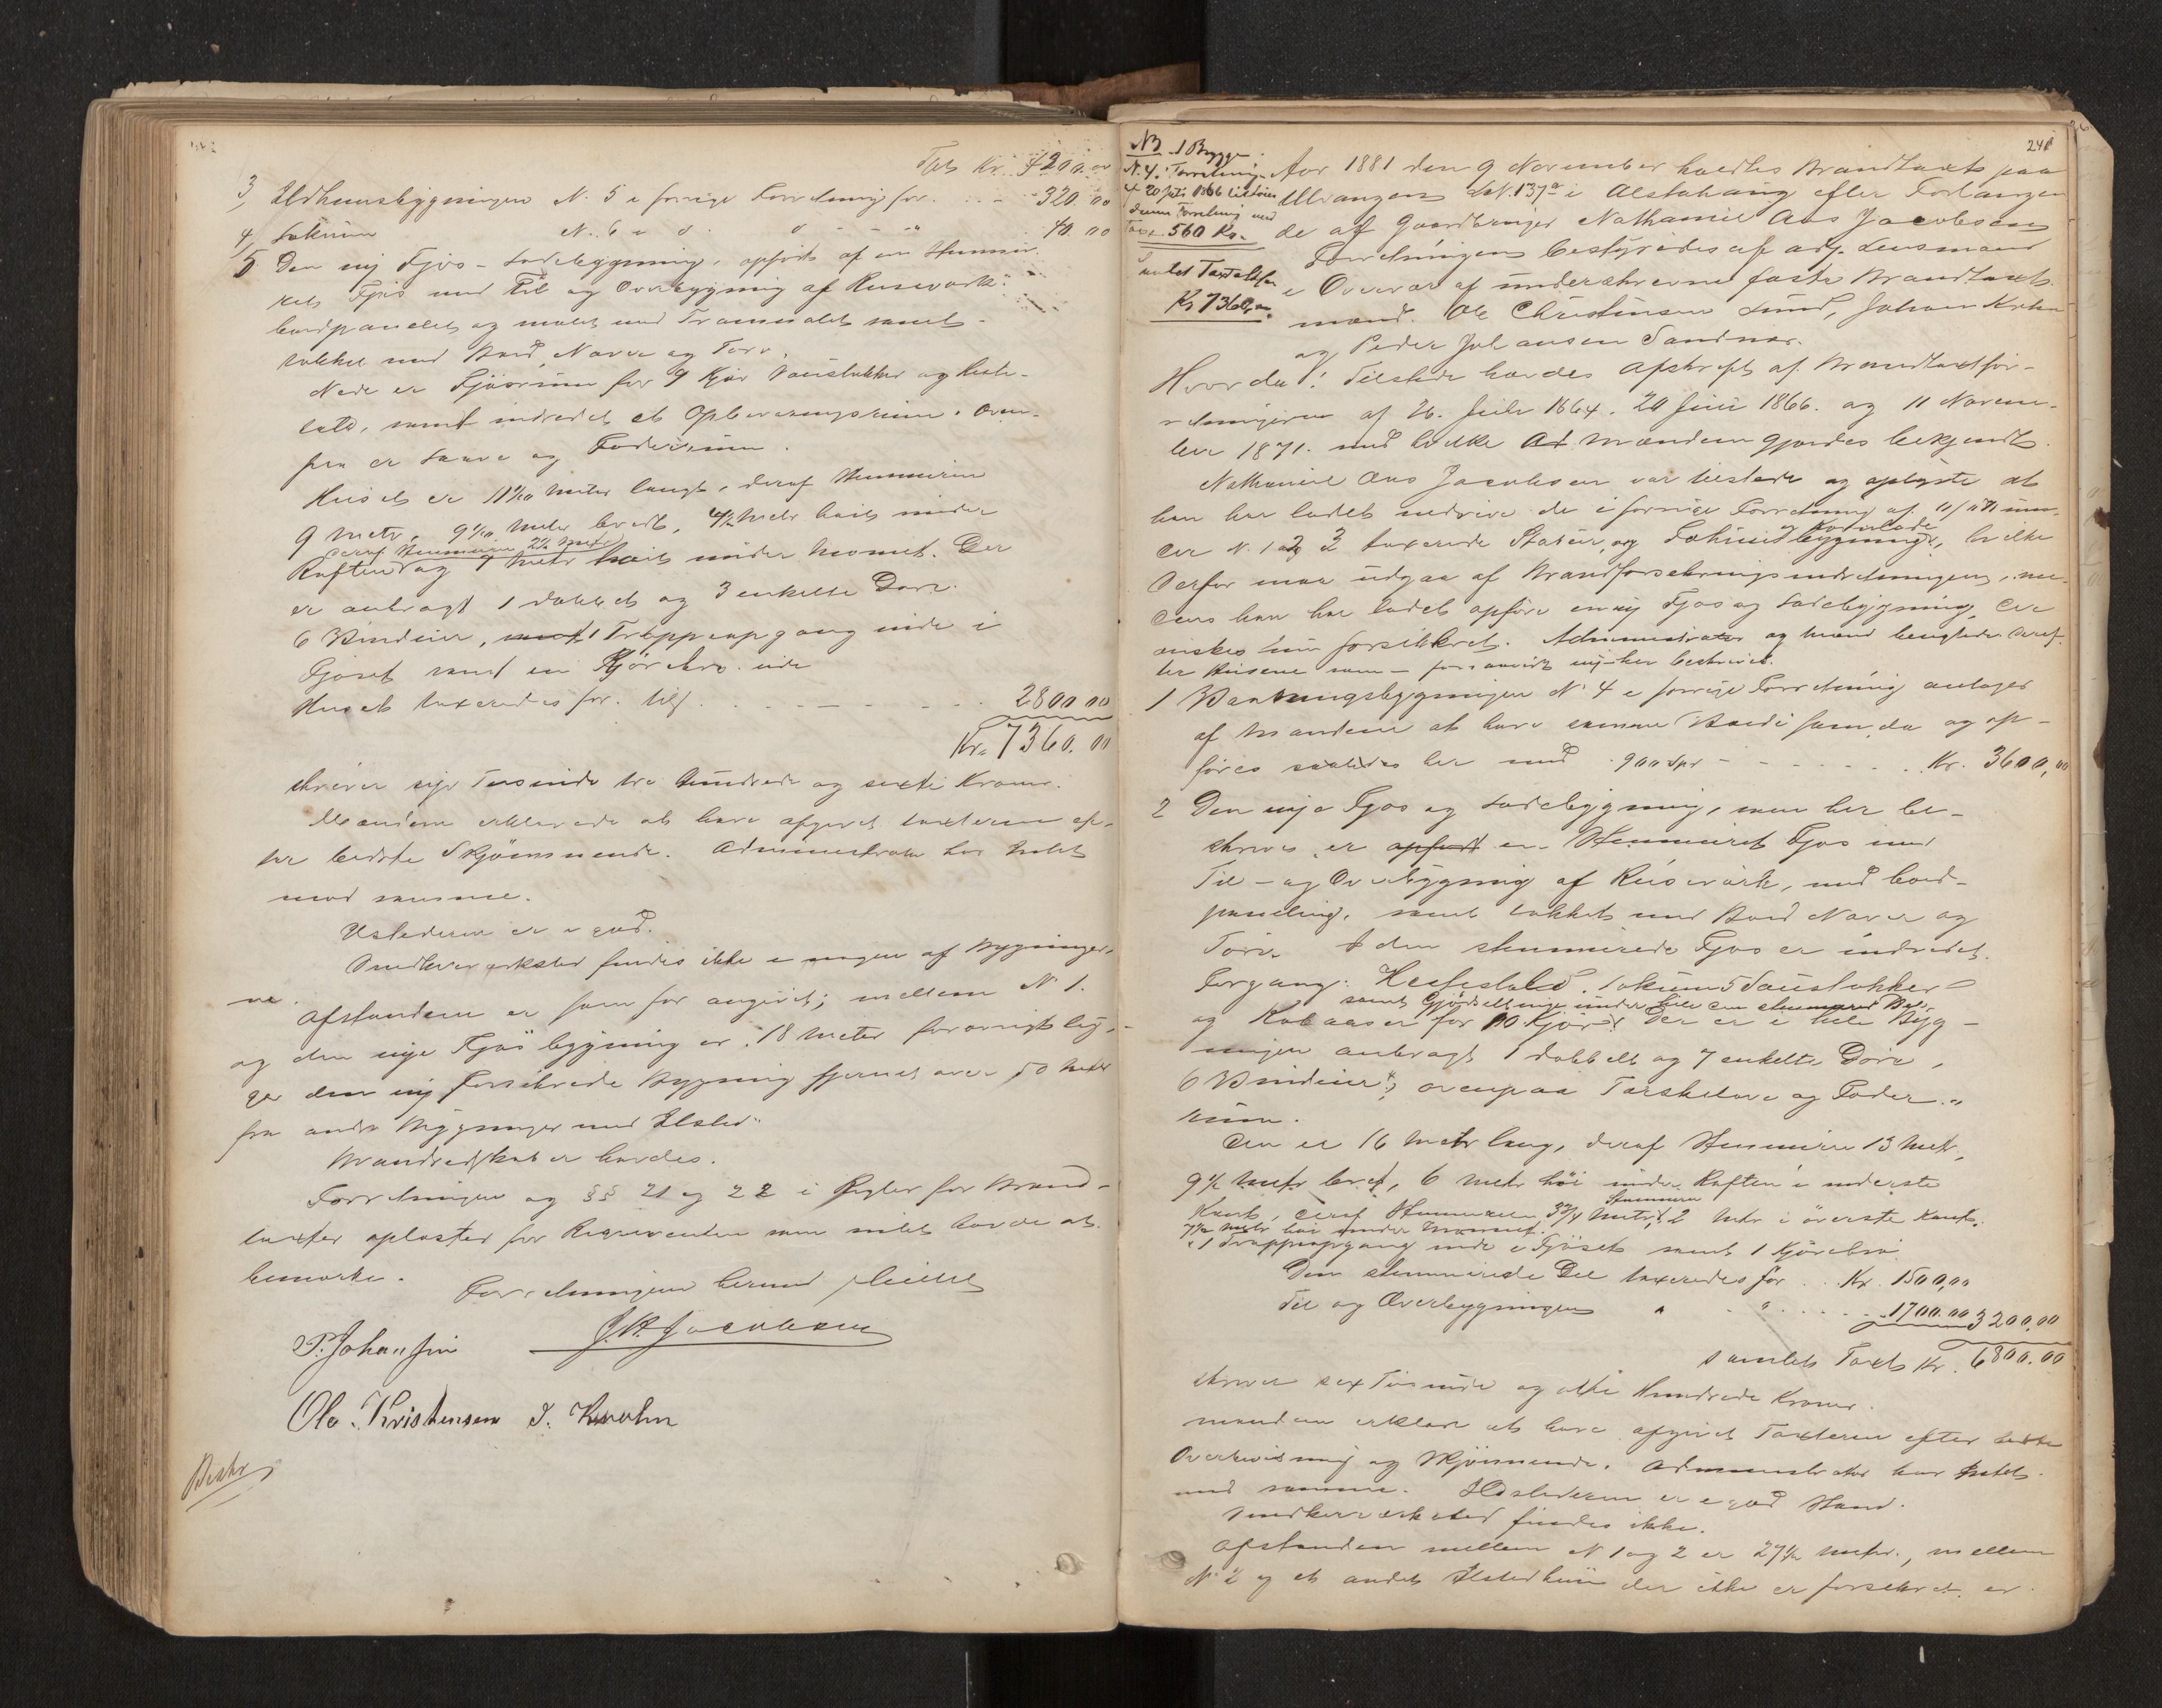 Tats Kr. 4200.00
3, Ildhuusbygningen N. 5 i forrige Forretning for - 320.00
4, Lokum N. 6 " d. d - - " 40.00
5 Den ny Fjøs- Ladebygning, opført af en tømmr.
ret Fjøs med Til og Overbygning af Reisværk
bordpanelet og malet med Tranmaling samt
tækket med Bord, Næver og Torv.
Nede er Fjøsrum for 9 Kjør Sauestukker og Heste-
stald, samt indredet et Opbevaringsrum. Oven-
paa er Laave og Foderrum.
Huset er 11 meter langt, deraf Tømmeret
9 metr, 9 meter bredt, 4½ metr høit under
deraf Tømmeren 2½ metr
Raften og 7 metr høit under Mønnet. Der
er anbragt 1 dobbelt og 3 enkelte Døre.
6 Vinduer, 1 Trappeopgang inde i
Fjøset samt en Kjørebro ude
Huset taxeredes for. til - - - 2800 00
Kr. 7360.00
skriver syv Tusinde tre Hundrede og sexti Kroner.
Mændene erklærede at have afgivet taxterne ef-
ter bedste Skjønnende. Administrator har Intet
mod samme.
Ildstederne er i god.
Snedkerværksted findes ikke i nogen af Bygninger-
ne.
Afstanden er som før angivet; mellem N. 1.
og den nye Fjøsbygning er 18 meter forøvrigt lig-
ger den ny forsikrede Bygning fjernet over 50 meter
fra andre Bygninger med Ildsted.
Brandredskaber havdes.
Forretningen og §§ 21 og 22 i Regler for Brand-
taxter oplæstes for Reqvirenten som intet havde at
bemærke.
Forretningen hermed sluttet
P. Johansen J. P. Jacobsen
Ole. Kristensen J. Krohn
Beskr
241
NB 1 Bygge
N. 4. Forretning
af 20 Juli 1866 tilføies
denne Forretning med
Taxt 560 Kr.
Samlet Taxt altsaa
Kr 7360,00.
Aar 1881 den 9 November holdtes Brandtaxt paa
Ulvangen M.N. 137a i Alstahaug efter Forlangen-
de af Gaardbruger Nathaniel Aas Jacobsen
Forretningen bestyredes af adj. Lensmand
i Overvær af underskrevne faste Brandtaxt-
mænd. Ole Christensen Lund, Johan Krohn
og Peder Johansen Sandnes.
Hvorda! Tilstede havdes Afskrift af Brandtaxtfor-
retningerne af 26. Juli 1864. 20 Juli 1866. og 11 Novem-
ber 1871. med hvilke Mændene gjordes bekjendt.
Nathaniel Aas Jacobsen var tilstede og oplyste at
han har ladet nedrive de i forrige Forretning af 11/11 71 un-
og Kornlade
der N. 1 2 og 3 taxerede Stabur, og Fæhuusbygning, hvilke
derfor maa udgaa af Brandforsikringsindretningen, me-
dens han har ladet opføre en ny Fjøs og Ladebygning, der
ønskes nu forsikkret. Administrator og Mænd besigtede deref-
ter Husene som - forsaavidt ny - her beskrives.
1 Vaaningsbygningen N. 4 i forrige Forretning antages
af Mændene at have samme Værdi som da og op-
føres saaledes her med 900 Spd - - - Kr. 3600,00
2 Den nye Fjøs og Ladebygning, som her be-
skrives er opført en Tømmeret Fjøs med
Til- og Overbygning af Reisværk, med bord-
paneling, samt tækket med Bord Næver og
Torv. I den tømmerede Fjøs er indredet.
Forgang. Hestestald. 1 Lokum 5 Sauestukker
samt Gjødselbinge under hele den tømmrede
og Kobaaser for 10 Kjør. Der er i hele Byg-
ningen anbragt 1 dobbelt og 7 enkelte Døre,
6 Vinduer, ovenpaa Tærskelave og Foder-
rum.
Den er 16 metr lang, deraf Tømmeret 13 metr,
9½ metr bred, 6 metr høi under Raften i nederste
Tømmeren
Kant, deraf Tømmeren 3¾ metr, 2 metr i øverste Kant,
7½ metr høi under Mønnet.
1 Trappeopgang inde i Fjøset samt 1 Kjørebro
Den tømmerede Del taxeredes for . . Kr. 1500,00
Til og Overbygningen " " - - - 1700.00 3200,00
samlet Taxt Kr. 6800.00
skriver sex Tusinde og otte Hundrede Kroner.
Mændene erklære at have afgivet Taxterne efter bedste
Overbevisning og Skjønnende. Administrator har Intet
mod samme. Ildstederne er i god Stand.
Snedkerværksted findes ikke.
Afstanden mellem N 1 og 2 er 27½ metr., mellem
N. 2 og et andet Ildstedhuus der ikke er forsikret er